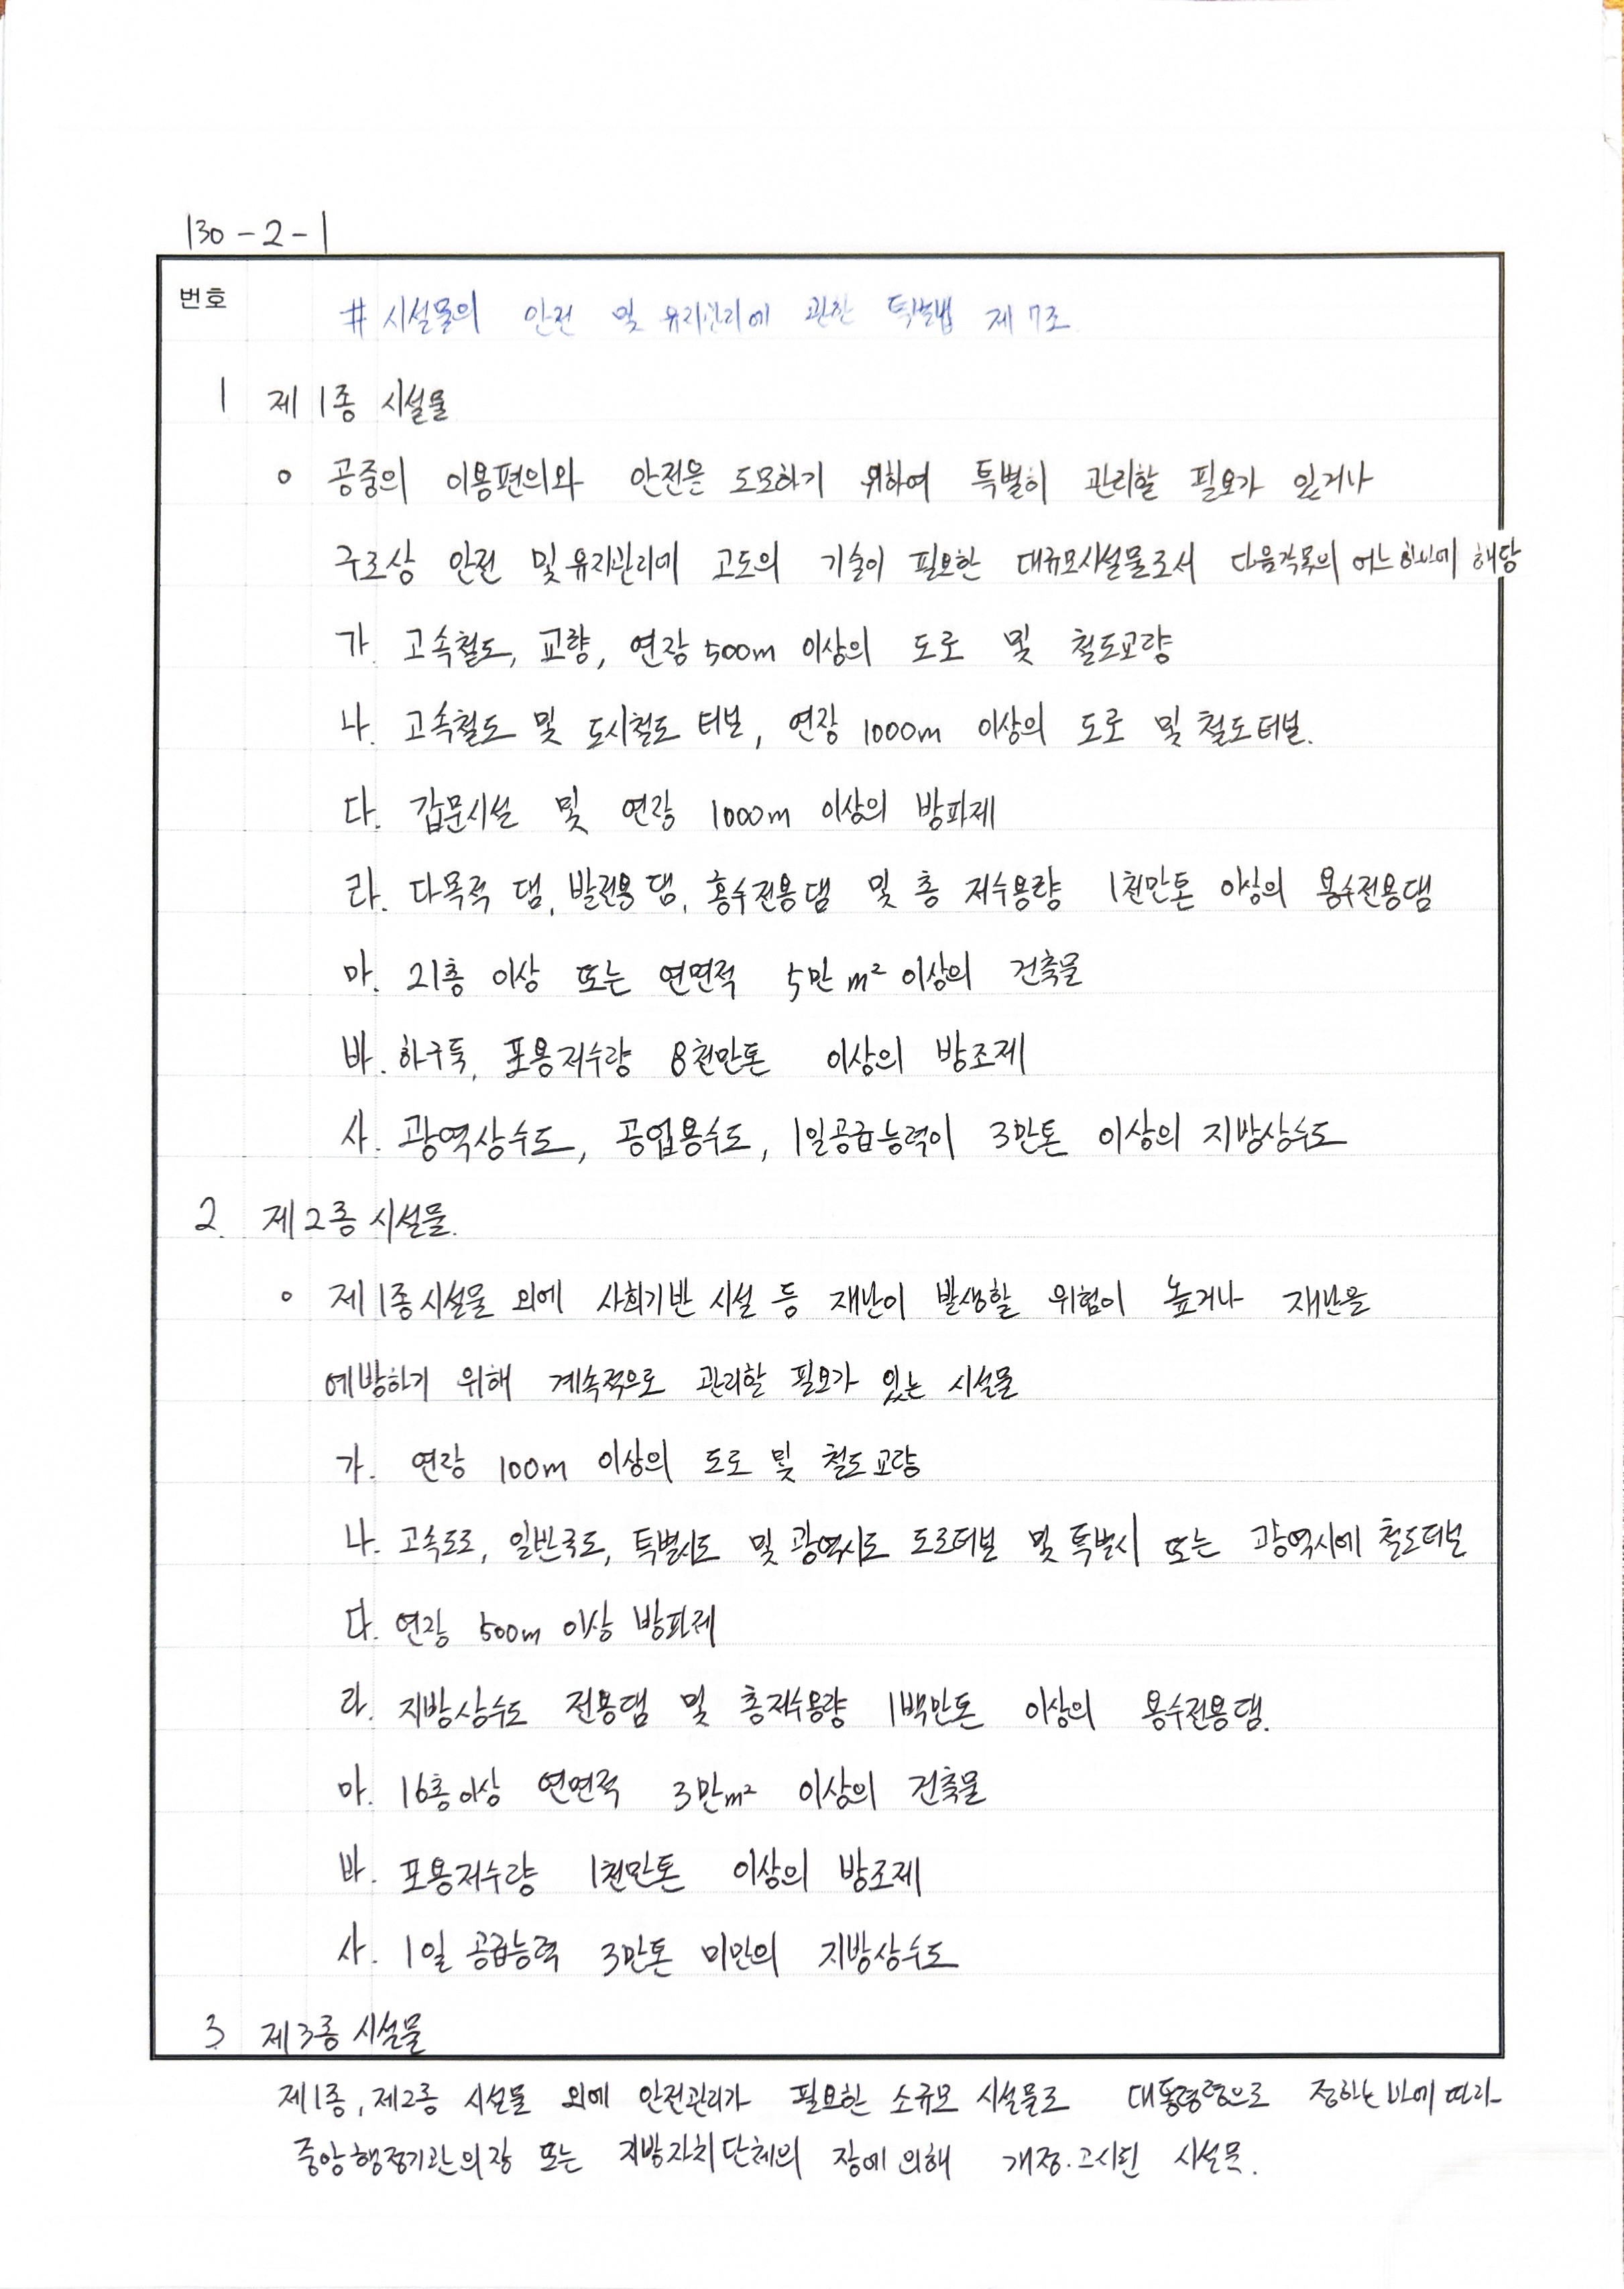 130-2-1
번호
# 시설물의 안전 및 유지관리에 관한 특별법 제7조
1 제1종 시설물
o 공중의 이용편의와 안전을 도모하기 위하여 특별히 관리할 필요가 있거나
구조상 안전 및 유지관리에 고도의 기술이 필요한 대규모시설물로서 다음각목의 어느 하나에 해당
가. 고속철도, 교량, 연장 500m 이상의 도로 및 철도교량
나. 고속철도 및 도시철도 터널, 연장 1000m 이상의 도로 및 철도터널.
다. 갑문시설 및 연장 1000m 이상의 방파제
라. 다목적 댐, 발전용 댐, 홍수전용댐 및 총 저수용량 1천만톤 이상의 용수전용댐
마. 21층 이상 또는 연면적 5만m² 이상의 건축물
바. 하구둑, 포용저수량 8천만톤 이상의 방조제
사. 광역상수도, 공업용수도, 1일공급능력이 3만톤 이상의 지방상수도
2. 제2종 시설물.
o 제1종시설물 외에 사회기반 시설 등 재난이 발생할 위험이 높거나 재난을
예방하기 위해 계속적으로 관리할 필요가 있는 시설물
가. 연장 100m 이상의 도로 및 철도교량
나. 고속도로, 일반국도, 특별시도 및 광역시도 도로터널 및 특별시 또는 광역시에 철도터널
다. 연장 500m 이상 방파제
라. 지방상수도 전용댐 및 총저수용량 1백만톤 이상의 용수전용댐.
마. 16층이상 연면적 3만m² 이상의 건축물
바. 포용저수량 1천만톤 이상의 방조제
사. 1일 공급능력 3만톤 미만의 지방상수도
3. 제3종 시설물
제1종, 제2종 시설물 외에 안전관리가 필요한 소규모 시설물로 대통령령으로 정하는 바에 따라
중앙행정기관의장 또는 지방자치단체의 장에 의해 개정.고시된 시설물.